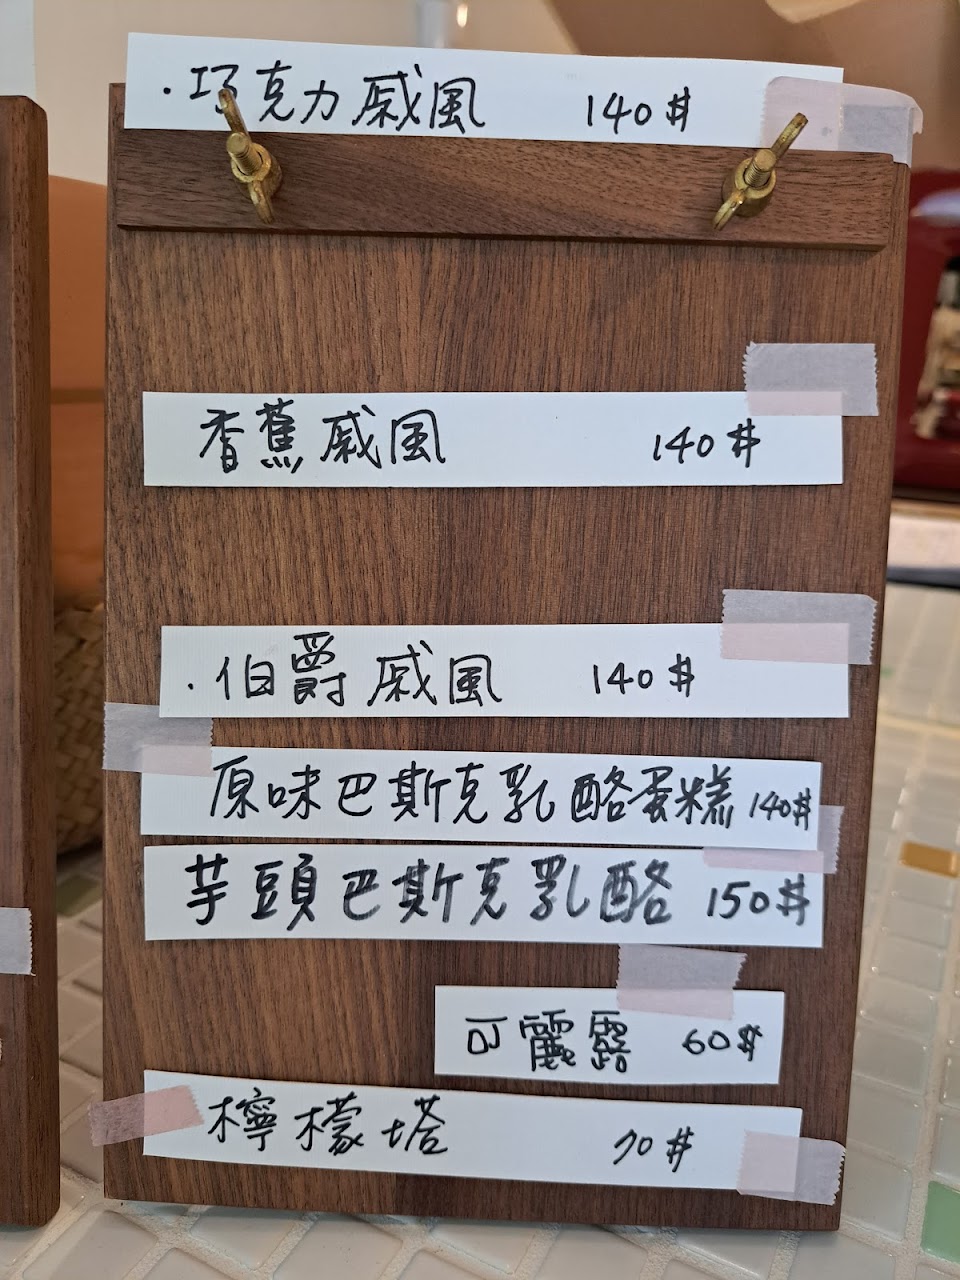 ·巧克力戚風 140#
香蕉戚風 140#
·伯爵戚風 140#
原味巴斯克乳酪蛋糕 140#
芋頭巴斯克乳酪 150#
可麗露 60#
檸檬塔 70#